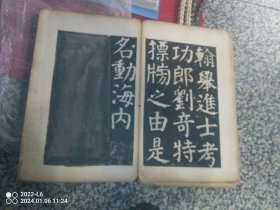 翰舉進士考
功郎劉奇特
摽牓之由是
名動海内
2022-L6
2024.01.06 11:24